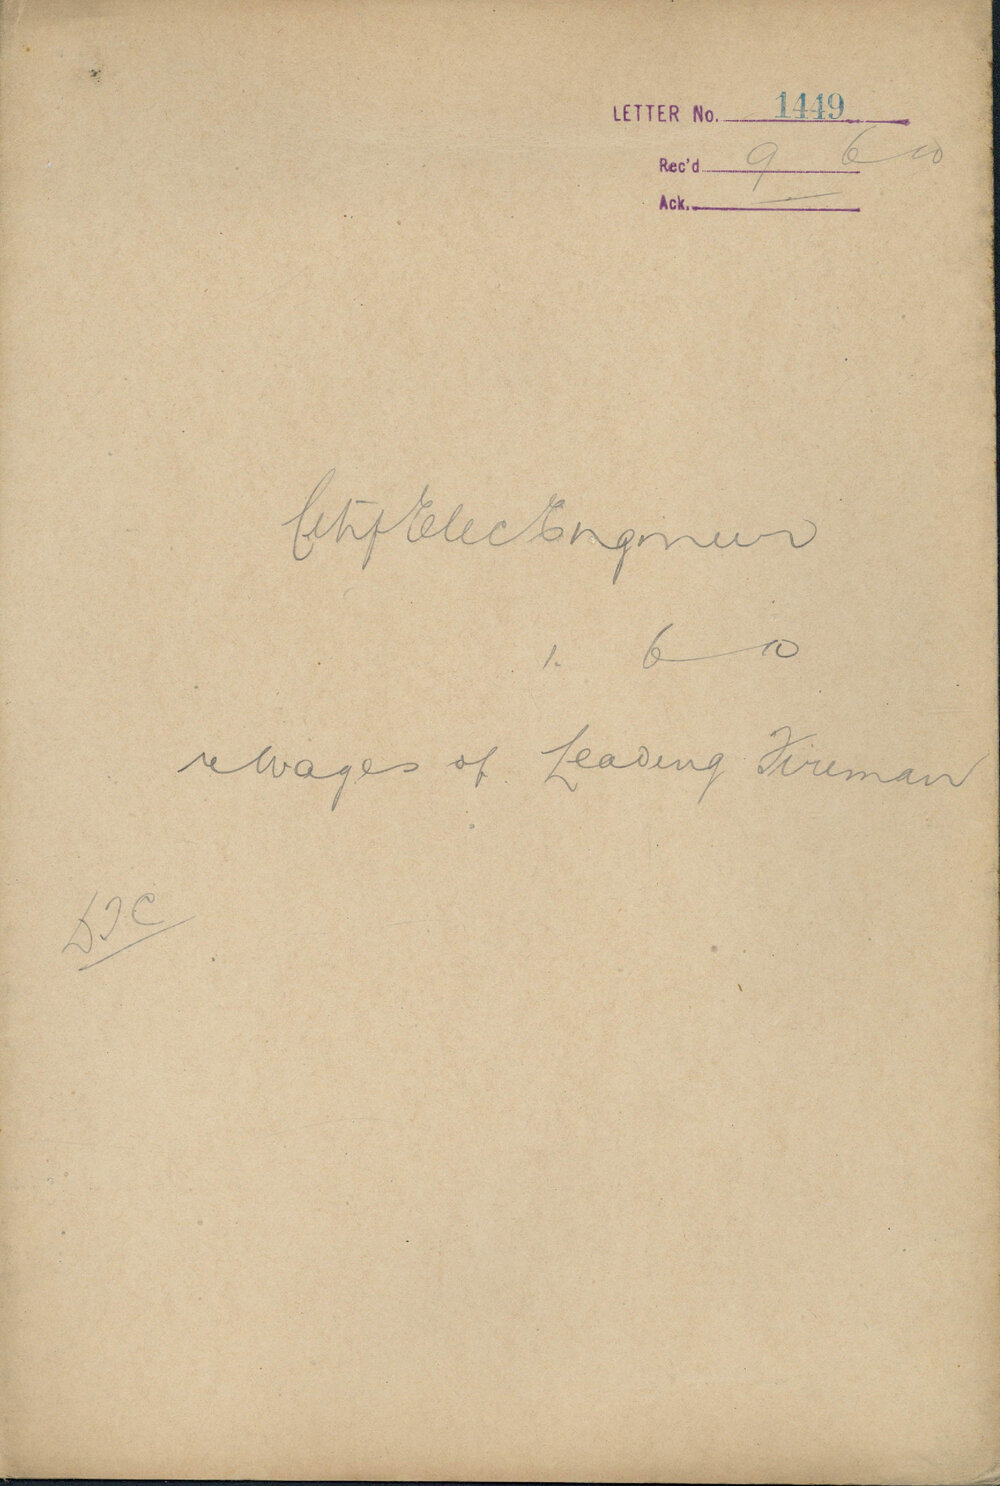 LETTER No. 1449
Rec'd 9 6 10
Ack.
City Elec Engineer
1. 6 10
re Wages of Leading Fireman